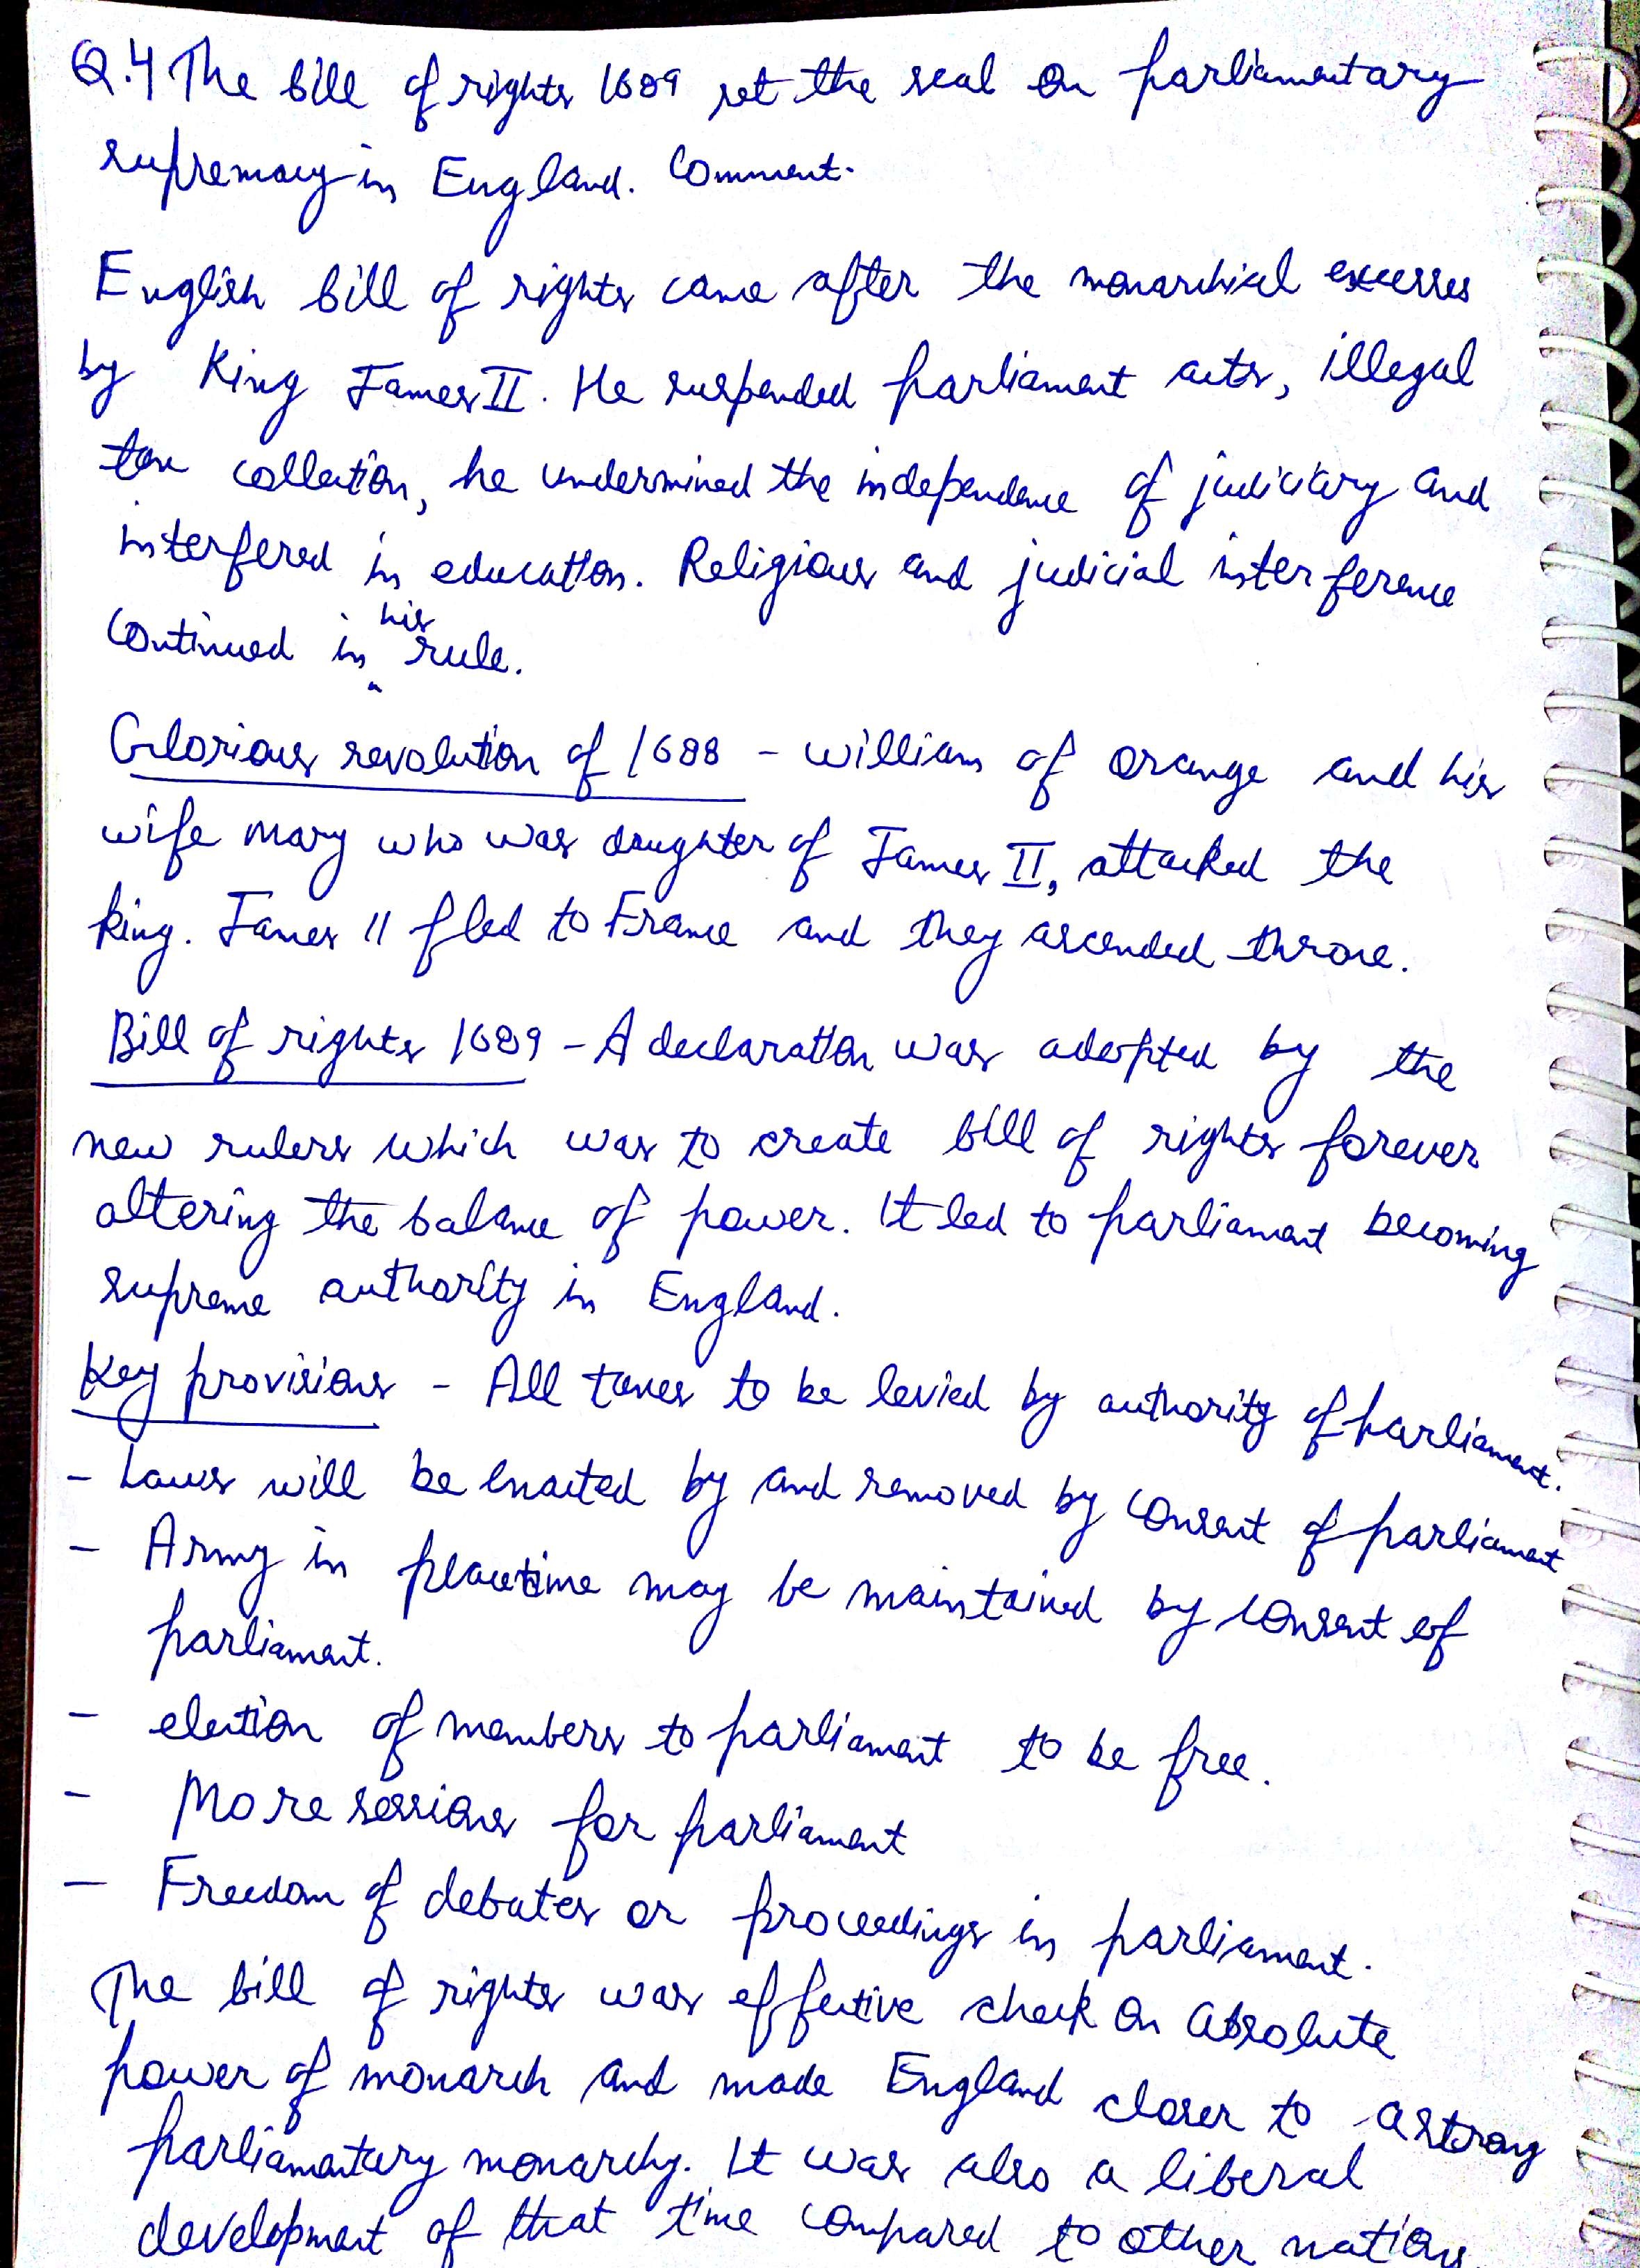 Q.4 The bill of rights 1689 set the seal on parliamentary
supremacy in England. Comment.
English bill of rights came after the monarchial excesses
by King James II. He suspended parliament acts, illegal
tax collection, he undermined the independence of judiciary and
interfered in education. Religious and judicial interference
continued in his rule.
Glorious revolution of 1688 - william of orange and his
wife mary who was daughter of James II, attacked the
king. James II fled to France and they ascended throne.
Bill of rights 1689 - A declaration was adopted by the
new rulers which was to create bill of rights forever
altering the balance of power. It led to parliament becoming
supreme authority in England.
Key provisions - All taxes to be levied by authority of parliament.
- Laws will be enacted by and removed by consent of parliament
- Army in peacetime may be maintained by consent of
parliament.
- election of members to parliament to be free.
- More sessions for parliament
- Freedom of debates or proceedings in parliament.
The bill of rights was effective check on absolute
power of monarch and made England closer to a strong
parliamentary monarchy. It was also a liberal
development of that time compared to other nations.